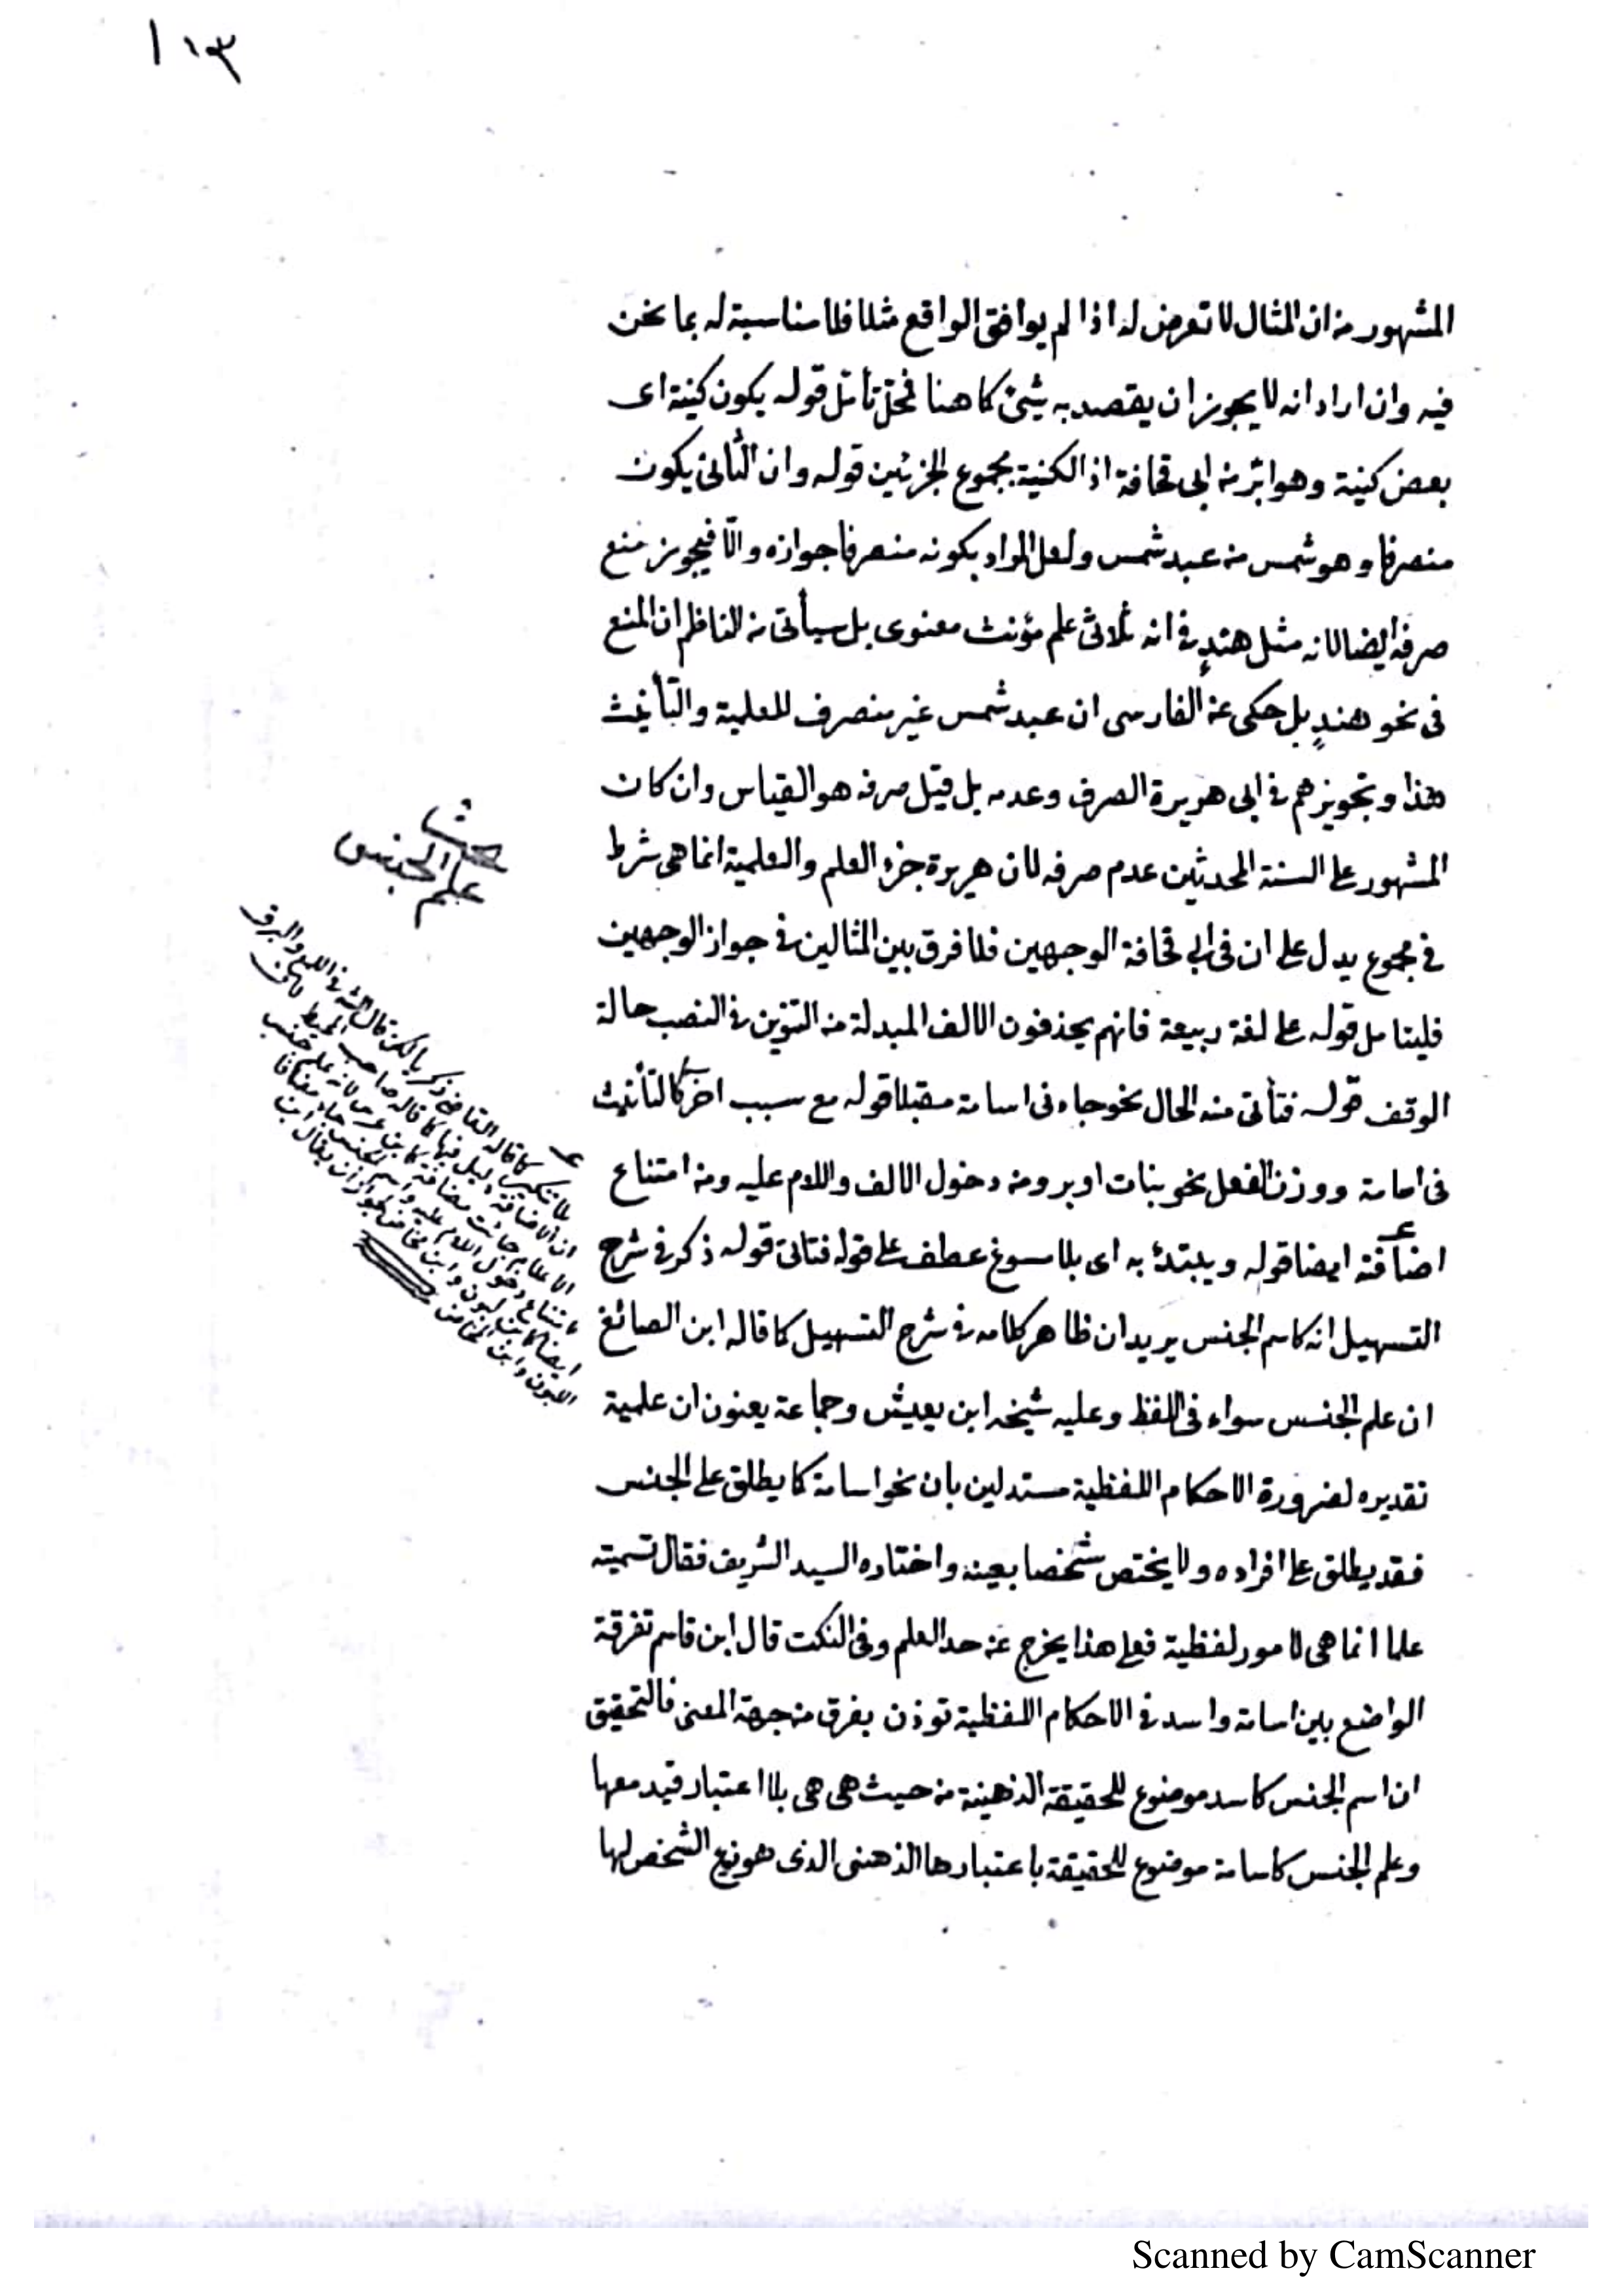 ١٠٣
المشهور من ان المثال لا تعرض له اذا لم يوافق الواقع مثلا فلا مناسبة له بما نحن
فيه وان اراد انه لا يجوز ان يقصد به شئ كما هنا فمحل تأمل قوله يكون كنية اى
بعض كنية وهو اثر من ابى قحافة اذ الكنية مجموع الجزئين قوله وان الثانى يكون
منصرفا وهو شمس من عبد شمس ولعل المراد بكونه منصرفا جوازه والّا فيجوز منع
صرفه ايضا لانه مثل هند فى انه ثلاثى علم مؤنث معنوى بل سيأتى من الناظم ان المنع
فى نحو هند بل حكى عن الفارسى ان عبد شمس غير منصرف للعلمية والتأنيث
هذا وتجويزهم فى ابى هريرة الصرف وعدمه بل قيل صرفه هو القياس وان كان
المشهور على السنة المحدثين عدم صرفه لان هريرة جزء العلم والعلمية انما هى شرط
فى مجموع يدل على ان فى ابى قحافة الوجهين فلا فرق بين المثالين فى جواز الوجهين
فليتامل قوله على لغة ربيعة فانهم يحذفون الالف المبدلة من التنوين فى النصب حالة
الوقف قوله فتأتى منه الحال نحو جاءنى اسامة مقبلا قوله مع سبب اخر كالتأنيث
فى اسامة ووزن الفعل نحو بنات اوبر ومن دخول الالف واللام عليه ومن امتناع
اضافته ايضا قوله ويبتدئ به اى بلا مسوغ عطف على قوله فتاتى قوله ذكر فى شرح
التسهيل انه كاسم الجنس يريد ان ظاهر كلامه فى شرح التسهيل كما قاله ابن الصائغ
ان علم الجنس سواء فى اللفظ وعليه شيخه ابن يعيش وجماعة يعنون ان علمية
تقديره لضرورة الاحكام اللفظية مستدلين بان نحو اسامة كما يطلق على الجنس
فقد يطلق على افراده ولا يختص شخصا بعينه واختاره السيد الشريف فقال تسميته
علما انما هى لامور لفظية فعلى هذا يخرج عن حد العلم وفى النكت قال ابن قاسم تفرقة
الواضع بين اسامة واسد فى الاحكام اللفظية توذن بفرق من جهة المعنى فالتحقيق
ان اسم الجنس كاسد موضوع للحقيقة الذهنية من حيث هى هى بلا اعتبار قيد معها
وعلم الجنس كاسامة موضوع للحقيقة باعتبارها الذهنى الذى هو نوع الشخص لها
مبحث
علم الجنس
Scanned by CamScanner